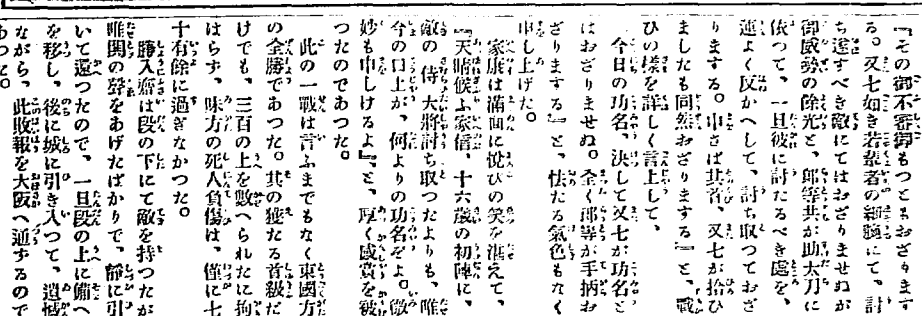 『その御不審御もつともおざります
る。又七如き若輩者の細腕にて、討
ち遂すべき敵にてはおざりませぬが
御威勢の餘光と、郎等共が助太刀に
依つて、一旦彼に討たるべき處を、
運よく反かへして、討ち取つておざ
りまする。申さば其首、又七が拾ひ
ましたも同然おざりまする』と、戰
ひの樣を詳しく言上して、
今日の功名、決して又七が功名と
はおざりませぬ。全く郎等が手柄お
ざりまする』と、怯たる氣色もなく
申し上げた。
家康は滿面に悅びの笑を湛えて、
『天晴候ふ家信、十六歲の初陣に、
敵の侍大將討ち取つたよりも、唯
今の口上が、何よりの功名をよ。
妙も申しけるよ』と、厚く感賞を被
つたのであつた。
此の一戰は言ふまでもなく東國方
の全勝であつた。其の獲たる首級だ
けでも、三百の上を數へられたに拘
はらず、味方の死人負傷は、僅に七
十有餘に過ぎなかつた。
勝入齋は段の下にて敵を持つたが
唯鬨の聲をあげたばかりで、靜に引
いて還つたので、一旦段の上に備へ
を移し、後に城に引き入つて、遺憾
ながら、此敗報を大阪へ通ずるので
あつた。